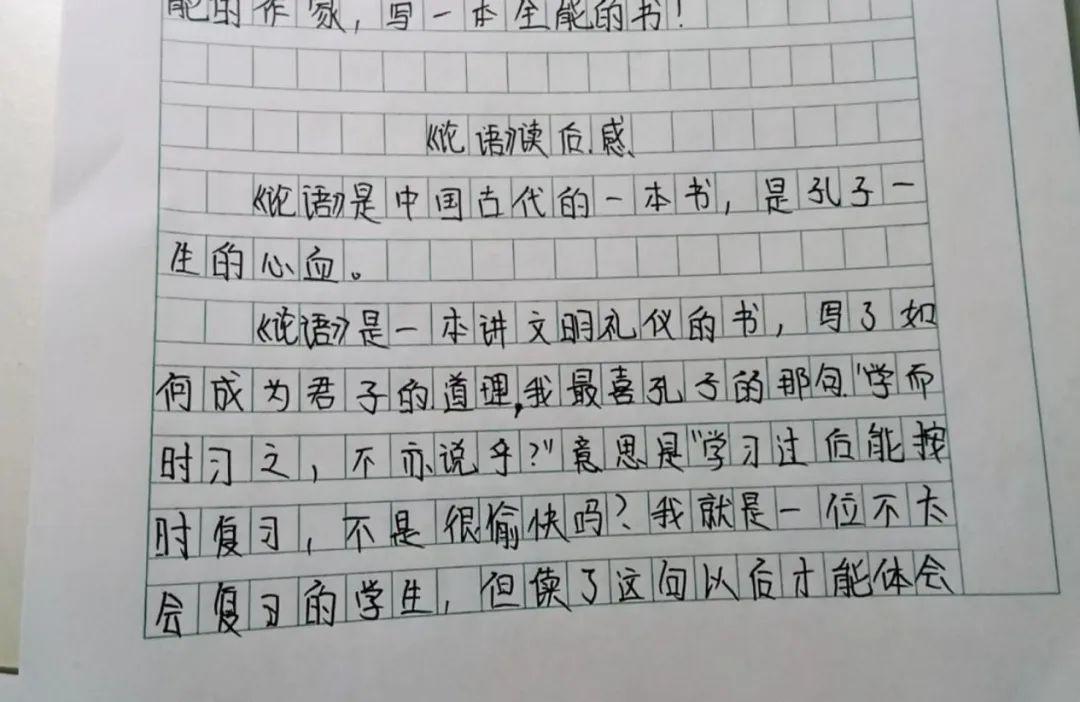 能的作家，写一本全能的书！
《论语》读后感
《论语》是中国古代的一本书，是孔子一
生的心血。
《论语》是一本讲文明礼仪的书，写了如
何成为君子的道理,我最喜孔子的那句"学而
时习之，不亦说乎?"意思是"学习过后能按
时复习，不是很愉快吗?我就是一位不太
会复习的学生，但读了这句以后才能体会